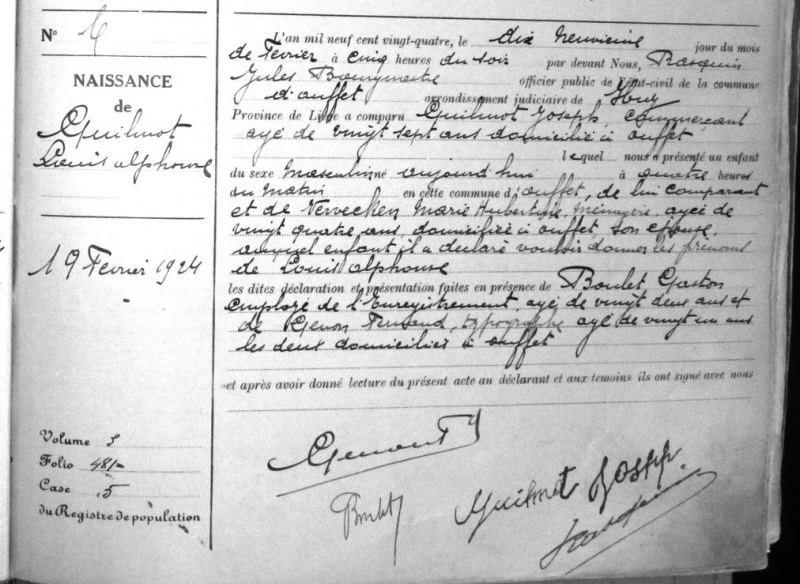 N° 6
NAISSANCE
de
Guilmot
Louis alphonse
19 Fevrier 1924
Volume 3
Folio 481
Case 5
du Registre de population
L'an mil neuf cent vingt-quatre, le dix neuvieme jour du mois
de Fevrier à cinq heures du soir par devant Nous, Rasquin
Jules Bourgmestre officier public de l'état-civil de la commune
d'ouffet arrondissement judiciaire de Huy
Province de Liége a comparu Guilmot Joseph, commercant
agé de vingt sept ans domicilié à ouffet
lequel nous a présenté un enfant
du sexe Masculin né aujourd'hui à quatre heures
du Matin en cette commune d'ouffet, de lui comparant
et de Vervecken Marie Hubertine, Menagere, agée de
vingt quatre ans, domiciliée à ouffet son epouse,
auquel enfant il a declaré vouloir donner les prenoms
de Louis alphonse
les dites déclaration et présentation faites en présence de Boulet Gaston
employé de l'Enregistrement, agé de vingt deux ans et
de Genon Fernand, typographe agé de vingt un ans
les deux domiciliés à ouffet
et après avoir donné lecture du présent acte au déclarant et aux temoins ils ont signé avec nous
Genon F
Boulet G
Guilmot Joseph